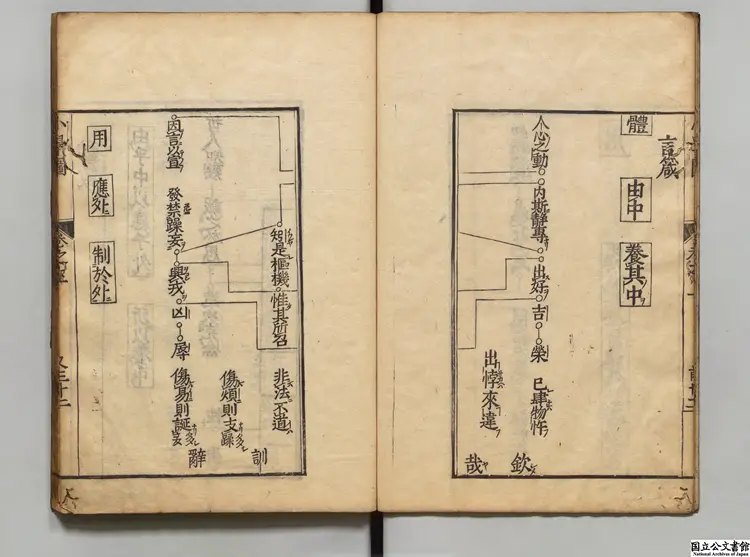 言箴
體 由中 養其中
人心之動 内斯靜專 出好 吉 榮 已肆物忤
出悖來違
欽哉
矧是樞機 惟其所召 非法不道
訓辭
傷煩則支
因言以宣 發禁躁妄 興戎 凶 辱 傷易則誕
用 應外 制於外
又三十二
国立公文書館
National Archives of Japan